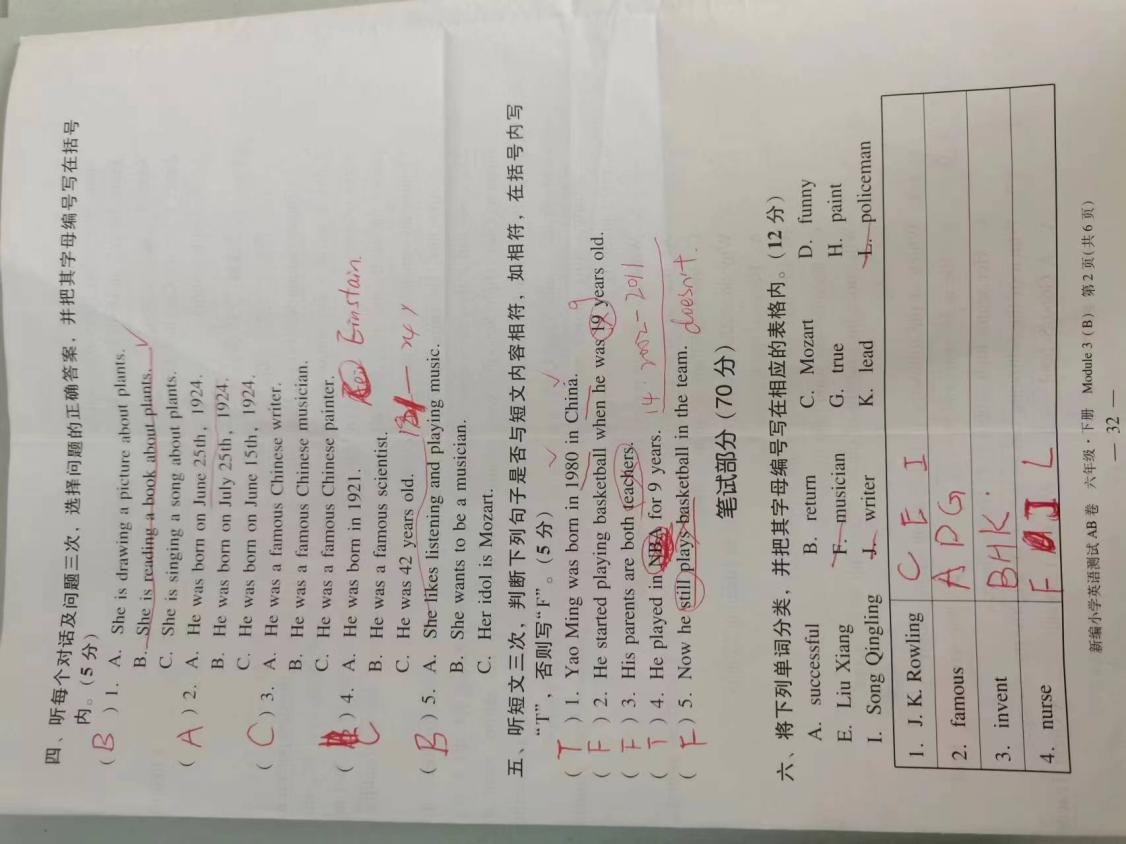 四、听每个对话及问题三次，选择问题的正确答案，并把其字母编号写在括号
内。(5 分)
( B ) 1. A. She is drawing a picture about plants.
B. She is reading a book about plants.
C. She is singing a song about plants.
( A ) 2. A. He was born on June 25th, 1924.
B. He was born on July 25th, 1924.
C. He was born on June 15th, 1924.
( C ) 3. A. He was a famous Chinese writer.
B. He was a famous Chinese musician.
C. He was a famous Chinese painter.
( C ) 4. A. He was born in 1921. Einstain
B. He was a famous scientist.
C. He was 42 years old.
( B ) 5. A. She likes listening and playing music.
B. She wants to be a musician.
C. Her idol is Mozart.
五、听短文三次，判断下列句子是否与短文内容相符，如相符，在括号内写
“T”，否则写“F”。(5 分)
( T ) 1. Yao Ming was born in 1980 in China.
( F ) 2. He started playing basketball when he was 19 years old. 9
( F ) 3. His parents are both teachers.
( T ) 4. He played in NBA for 9 years. 14 2002-2011
( F ) 5. Now he still plays basketball in the team. doesn't
笔试部分(70 分)
六、将下列单词分类，并把其字母编号写在相应的表格内。(12 分)
A. successful B. return C. Mozart D. funny
E. Liu Xiang F. musician G. true H. paint
I. Song Qingling J. writer K. lead L. policeman
1. J. K. Rowling C E I
2. famous A D G
3. invent B H K
4. nurse F J L
新编小学英语测试 AB 卷 六年级·下册 Module 3 (B) 第 2 页(共 6 页)
— 32 —